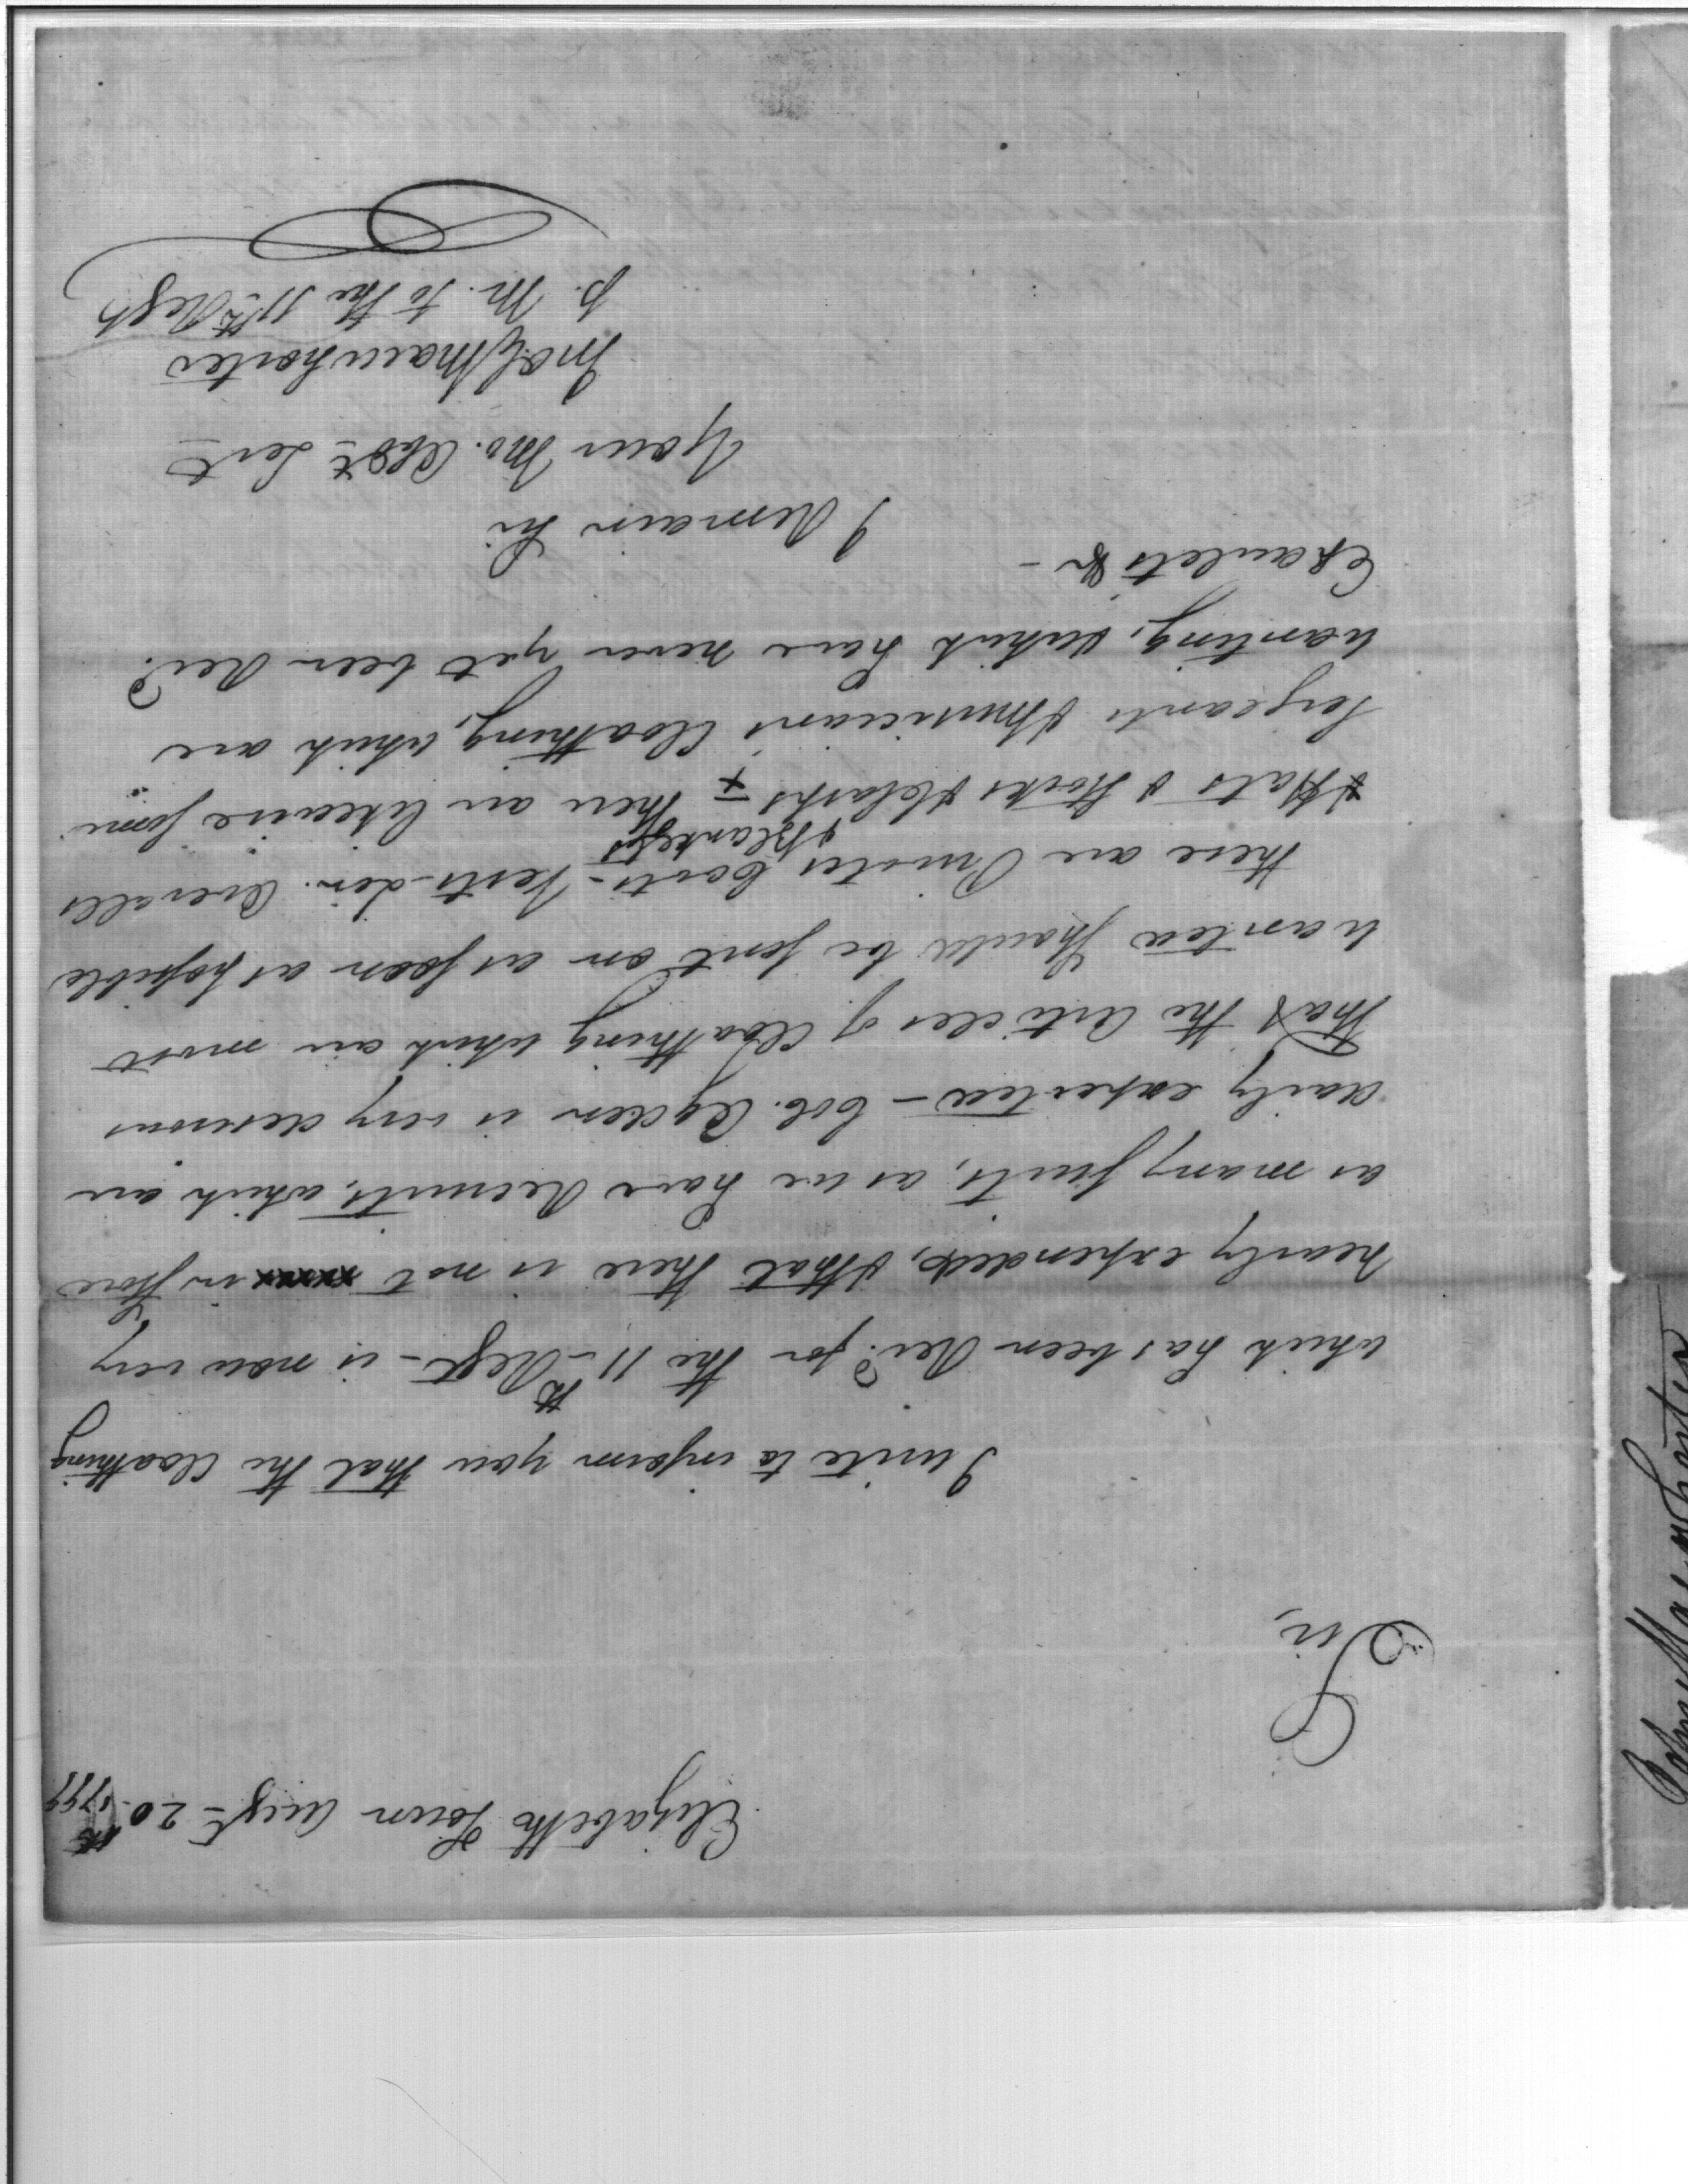 Elizabeth Town Augt. 20th 1799
Sir,
I write to inform you that the Cloathing
which has been Recd. for the 11th Regt. is now very
nearly expended, & that there is not in store
as many suits, as we have Recruits, which are
daily expected - Col. Ogden is very desirous
that the Articles of Cloathing which are most
wanted should be sent on as soon as possible
these are Privates Coats - Vests - Overalls
& Blankets
& Hats & Stocks & Clasps + There are likewise some
Sergeants & Musicians Cloathing, which are
wanting, which have never yet been Recd.
Epaulets &c -
I Remain Sir
Your Mo. Obdt. Servt
Jno. G. Macwhorter
P. M. to the 11th Regt
John Macwhorter